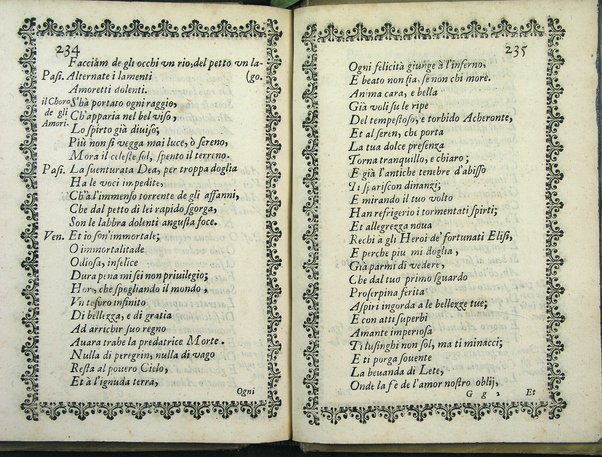 234
Facciam de gli occhi vn rio, del petto vn la-
Pasi. Alternate i lamenti (go.
Amoretti dolenti.
il Choro S'hà portato ogni raggio,
de gli Ch'apparia nel bel viso,
Amori. Lo spirto già diuiso;
Più non si vegga mai luce, ò sereno,
Mora il celeste sol, spento il terreno.
Pasi. La suenturata Dea, per troppa doglia
Ha le voci impedite,
Ch'à l'immenso torrente de gli affanni,
Che dal petto di lei rapido sgorga,
Son le labbra dolenti angusta foce.
Ven. Et io son'immortale;
O immortalitade
Odiosa, infelice
Dura pena mi sei non priuilegio;
Hor, che spogliando il mondo,
Vn tesoro infinito
Di bellezza, e di gratia
Ad arricbir suo regno
Auara trahe la predatrice Morte.
Nulla di peregrin, nulla di vago
Resta al pouero Cielo,
Et à l'ignuda terra,
Ogni
235
Ogni felicità giunge à l'inferno,
E beato non sia, se non chi more.
Anima cara, e bella
Già voli sù le ripe
Del tempestoso, e torbido Acheronte,
Et al seren, che porta
La tua dolce presenza
Torna tranquillo, e chiaro;
E già l'antiche tenebre d'abisso
Ti spariscon dinanzi;
E mirando il tuo volto
Han refrigerio i tormentati spirti;
Et allegrezza noua
Rechi à gli Heroi de' fortunati Elisi,
E perche più mi doglia,
Già parmi di vedere,
Che dal tuo primo sguardo
Proserpina ferita
Aspiri ingorda a le bellezze tue;
E con atti superbi
Amante imperiosa
Ti lusinghi non sol, ma ti minacci;
E ti porga souente
La beuanda di Lete,
Onde la fè de l'amor nostro oblij,
G g 2 Et